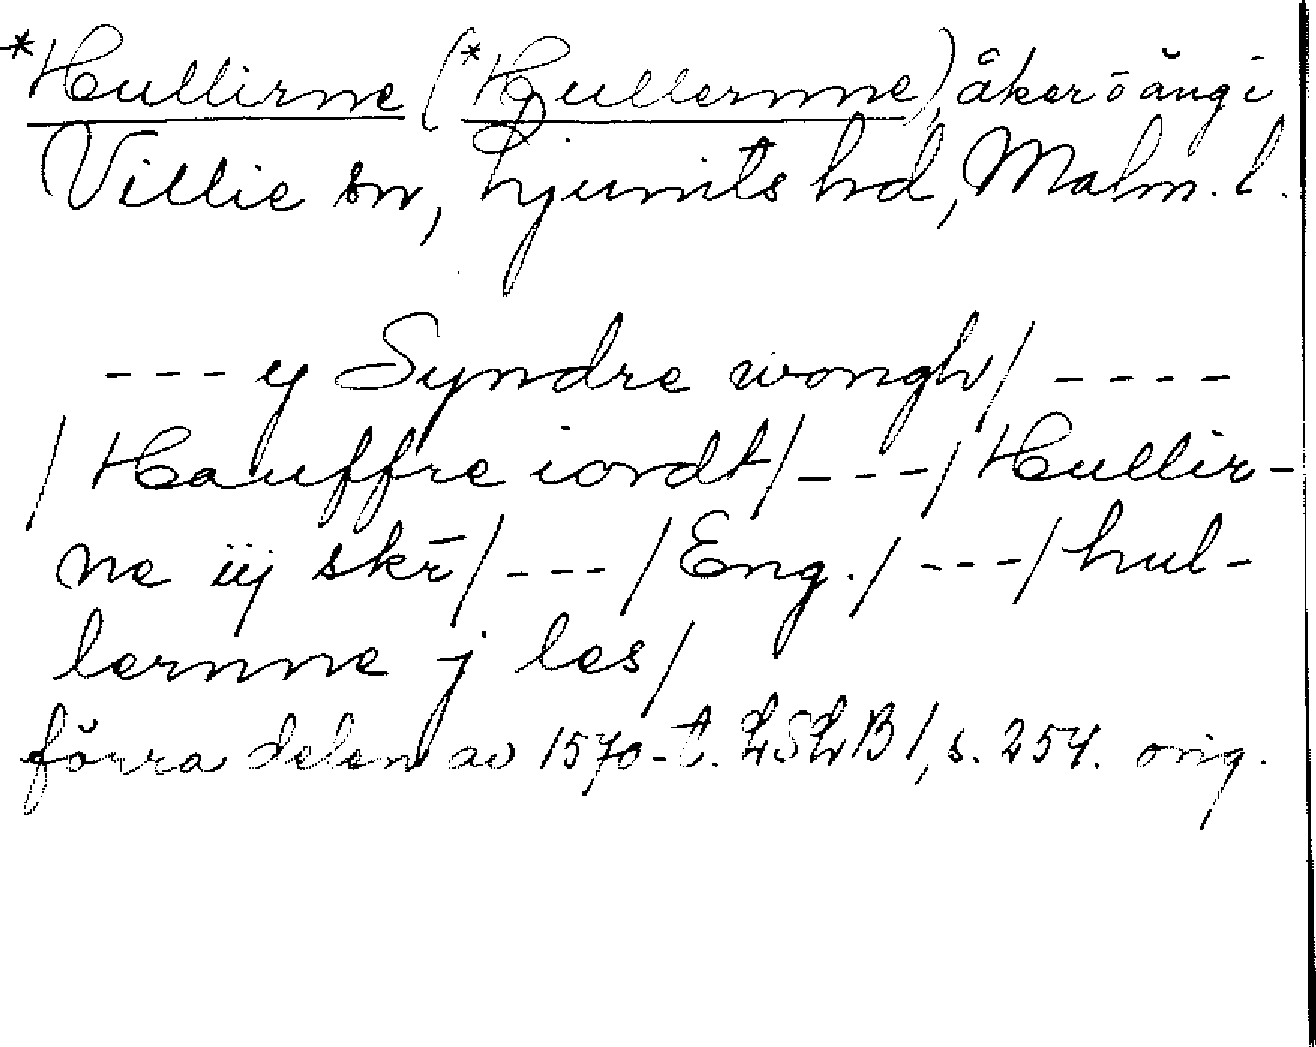 *Hullirne (*Hullernne), åker o äng i
Villie sn, Ljunits hd, Malm. l.
--- y Syndre wongh/ ----
/ Hauffre iordt/---/ Hullir-
ne iij skr̄/---/Eng./---/hul-
lernne j les/
förra delen av 1570-t. LSLB 1, s. 254. orig.